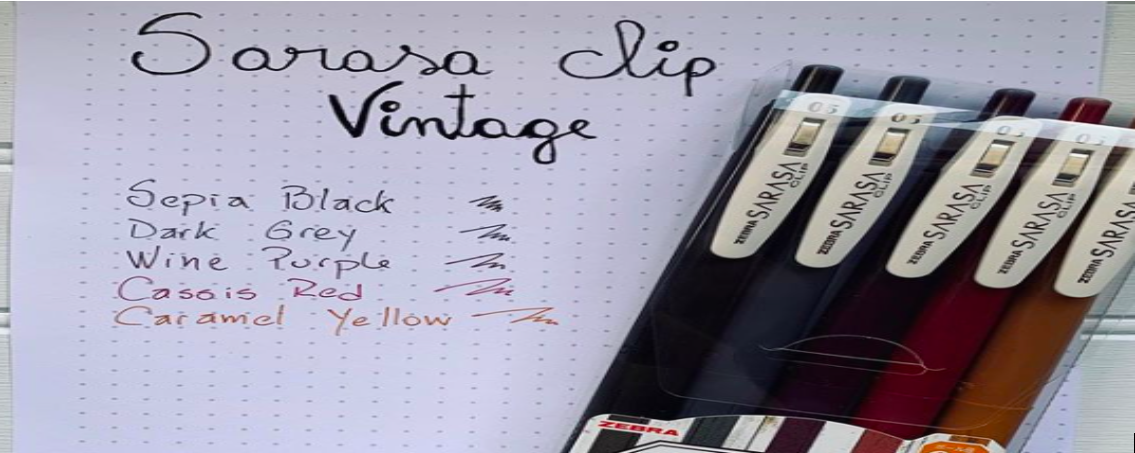 Sarasa clip
Vintage
Sepia Black
Dark Grey
Wine Purple
Cassis Red
Caramel Yellow
05
ZEBRA SARASA CLIP
05
ZEBRA SARASA CLIP
0.5
ZEBRA SARASA CLIP
0.5
ZEBRA SARASA CLIP
ZEBRA SARASA
ZEBRA